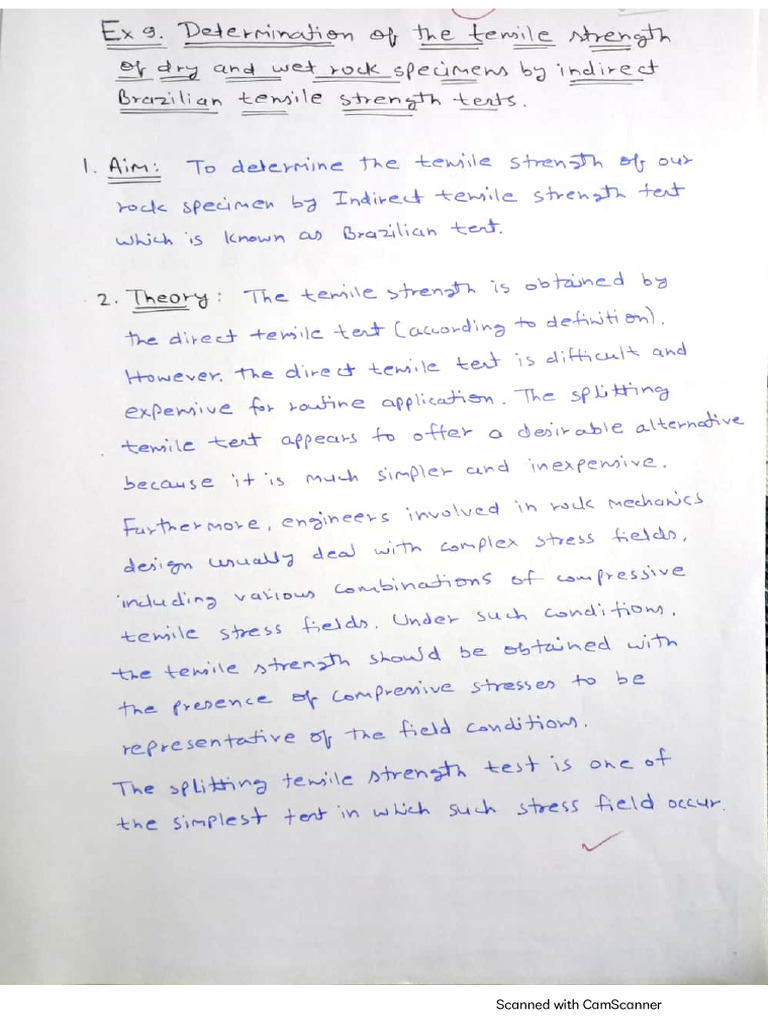 Ex 9. Determination of the tensile strength
of dry and wet rock specimens by indirect
Brazilian tensile strength tests.
1. Aim: To determine the tensile strength of our
rock specimen by Indirect tensile strength test
which is known as Brazilian test.
2. Theory: The tensile strength is obtained by
the direct tensile test (according to definition).
However. the direct tensile test is difficult and
expensive for routine application. The splitting
tensile test appears to offer a desirable alternative
because it is much simpler and inexpensive.
Furthermore, engineers involved in rock mechanics
design usually deal with complex stress fields,
including various combinations of compressive
tensile stress fields. Under such conditions,
the tensile strength should be obtained with
the presence of compressive stresses to be
representative of the field conditions.
The splitting tensile strength test is one of
the simplest test in which such stress field occur.
Scanned with CamScanner